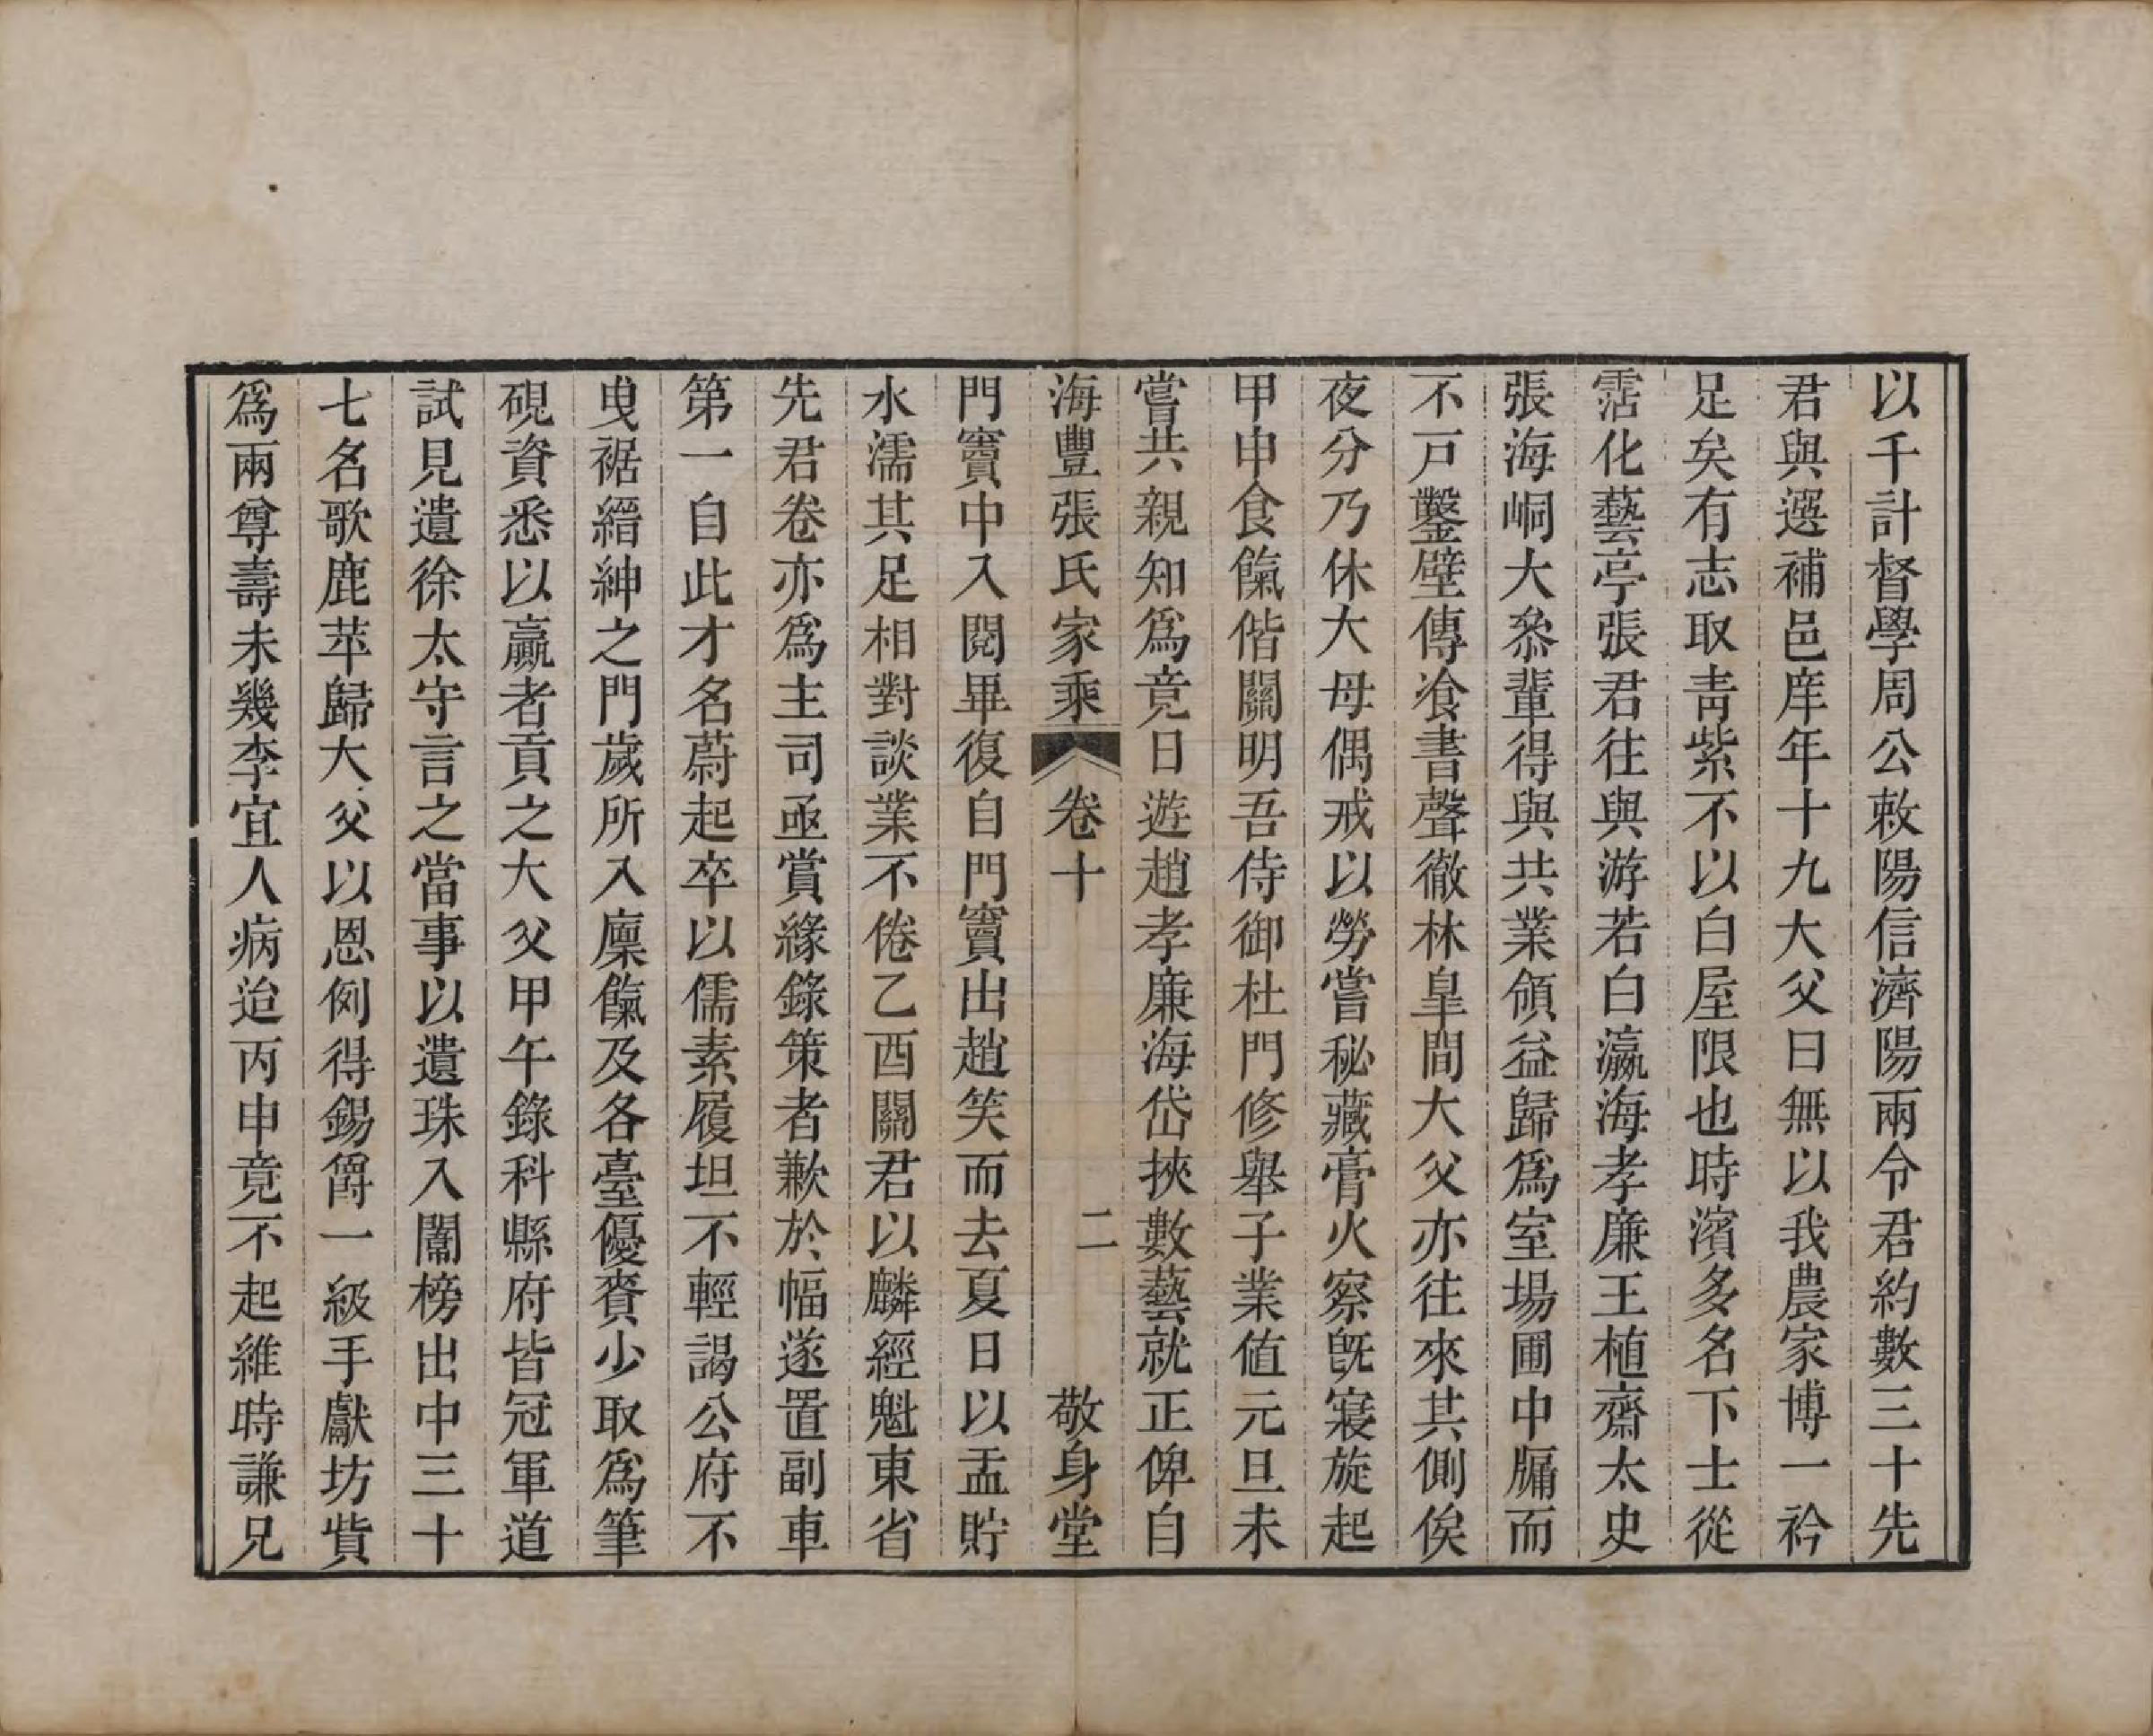 以千計督學周公敕陽信濟陽兩令君約數三十先
君與選補邑庠年十九大父曰無以我農家博一衿
足矣有志取青紫不以白屋限也時濱多名下士從
霑化藝亭張君往與游若白瀛海孝廉王植齋太史
張海峒大叅輩得與共業領益歸爲室場圃中牖而
不戸鑿壁傳飡書聲徹林臯間大父亦往來其側俟
夜分乃休大母偶戒以勞嘗秘藏膏火察旣寢旋起
甲申食餼偕關明吾侍御杜門修舉子業值元旦未
嘗共親知爲竟日遊趙孝廉海岱挾數藝就正俾自
海豐張氏家乘 卷十 二 敬身堂
門竇中入閱畢復自門竇出趙笑而去夏日以盂貯
水濡其足相對談業不倦乙酉關君以麟經魁東省
先君卷亦爲主司亟賞緣錄策者歉於幅遂置副車
第一自此才名蔚起卒以儒素履坦不輕謁公府不
曳裾縉紳之門歲所入廩餼及各臺優賚少取爲筆
硯資悉以贏者貢之大父甲午錄科縣府皆冠軍道
試見遺徐太守言之當事以遺珠入闈榜出中三十
七名歌鹿苹歸大父以恩例得錫爵一級手獻坊貲
爲兩尊壽未幾李宜人病迨丙申竟不起維時謙兄